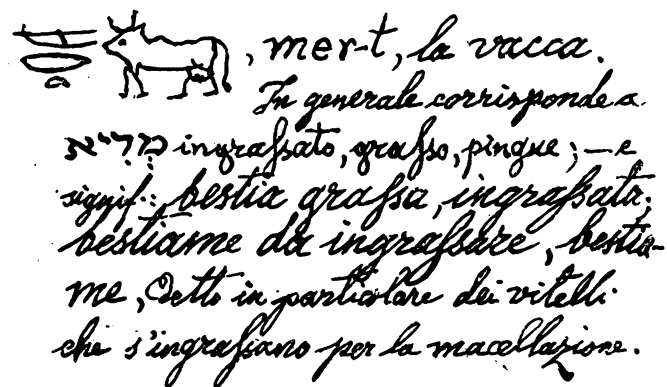 , mer-t, la vacca.
In generale corrisponde a
מְרִיא ingraſsato, graſso, pingue; — e
signif.: bestia graſsa, ingraſsata;
bestiame da ingraſsare, bestia-
me, detto in particolare dei vitelli
che s'ingraſsano per la macellazione.